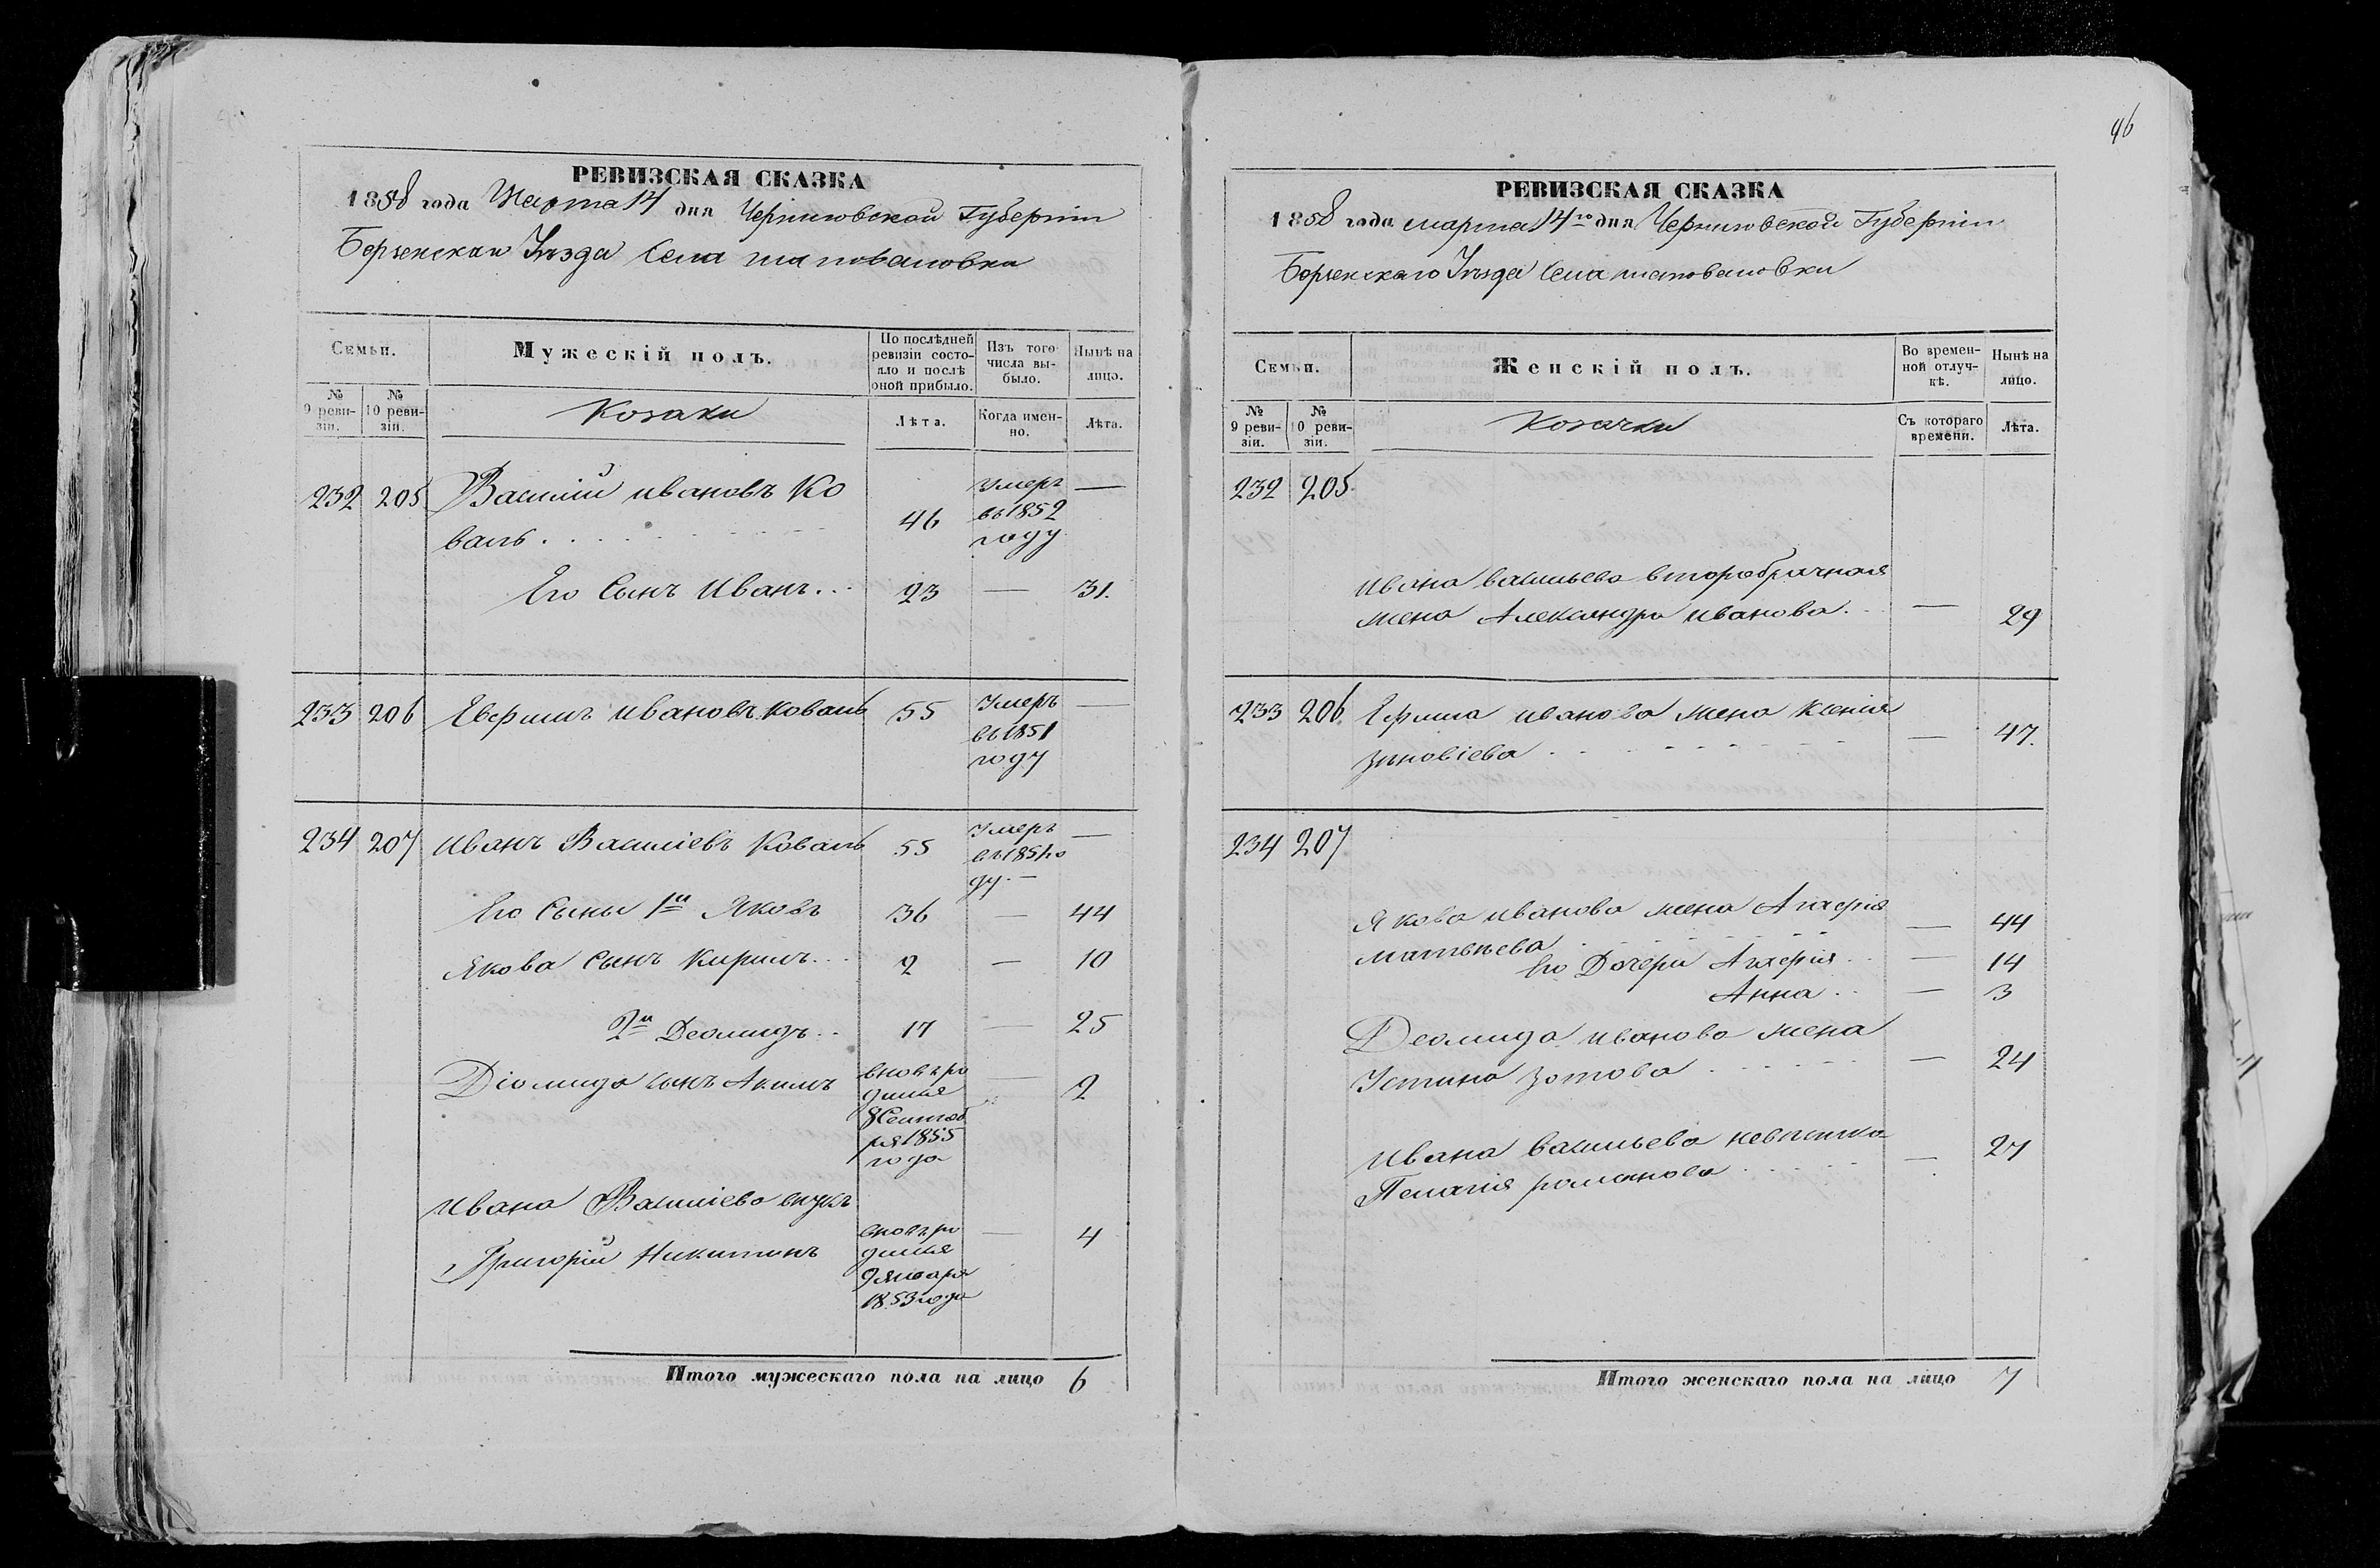 РЕВИЗСКАЯ СКАЗКА
1858 года Марта 14 дня Черниговской Губернiи
Борзенскаго Уѣзда Села шаповаловки
Семьи.
Мужескій полъ.
По послѣдней ревизіи состояло и послѣ оной прибыло.
Изъ того числа выбыло.
Нынѣ на лицо.
№ 9 ревизіи.
№ 10 ревизіи.
Козаки
Лѣта.
Когда именно.
Лѣта.
232 205 Василій ивановъ Ко
валь 46 Умеръ въ 1852 году —
Его Сынъ Иванъ 23 — 31.
233 206 Ивановъ Коваль 55 Умеръ въ 1851 году —
234 207 Иванъ Василіевъ Коваль 55 Умеръ въ 1851 го
ду —
Его Сыны 1й Яковъ 36 — 44
Якова Сынъ Кирилъ 2 — 10
2й Деомидъ 17 — 25
Діомида сынъ Акимъ вновь ро
дился
8 Сентяб
ря 1855
года — 2
Ивана Василіева внукъ
Григорій Никитинъ вновь ро
дился
9 января
1853 года — 4
Итого мужескаго пола на лицо 6
46
РЕВИЗСКАЯ СКАЗКА
1858 года марта 14го дня Черниговской Губерніи
Борзенскаго Уѣзда Села шаповаловки
Семьи.
Женскій полъ.
Во временной отлучкѣ.
Нынѣ на лицо.
№ 9 ревизіи.
№ 10 ревизіи.
Козачки
Съ котораго времени.
Лѣта.
232 205.
Ивана васильева второбрачная
жена Александра иванова — 29
233 206. иванова жена Ксенія
зиновіева — 47.
234 207
Якова иванова жена Агафія
матвѣева — 44
Его Дочери Агафія — 14
Анна — 3
Деомида иванова жена
Устина зотова — 24
Ивана васильева невѣстка
Пелагія романова — 27
Итого женскаго пола на лицо 7